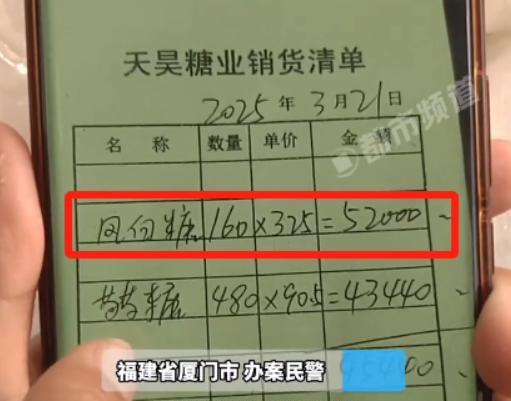 天昊糖业销货清单
2025年3月21日
都市频道
名 称 数量 单价 金 额
160×325=52000
糖 480×90.5=43440
福建省厦门市 办案民警